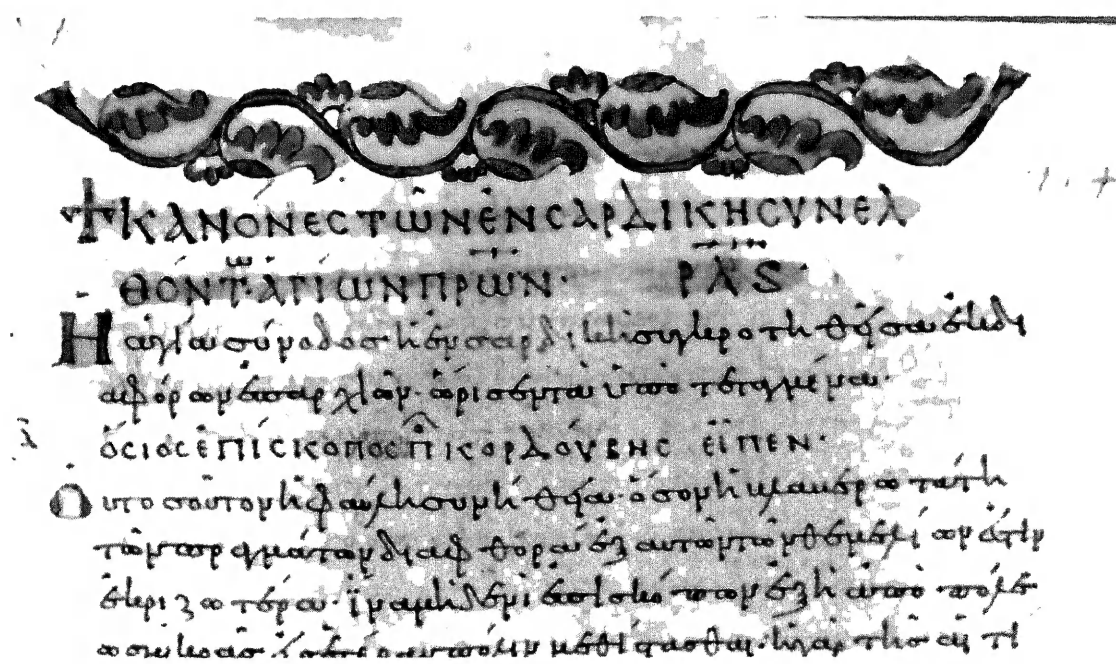 ✝ ΚΑΝΌΝΕC ΤῶΝ ἘΝ CΑΡΔΙΚΗ CΥΝΕΛ
ΘΌΝΤ ἉΓΊΩΝ ΠΡΩΝ· ΡΛS
Ἡ ἁγία σύνοδος ἡ ἐν σαρδικῆ συγκροτηθεῖσα ἐκ δι
αφόρων ἐπαρχιῶν· ὥρισεν τὰ ὑποτεταγμένα·
ὅCΙΟC ἐΠΊCΚΟΠΟC ΠΙ ΚΟΡΔΟΎΒΗC ΕἶΠΕΝ·
Οὐ τοσοῦτον ἡ φαύλη συνήθεια· ὅσον ἡ βλαβερωτάτη
τῶν πραγμάτων διαφθορὰ ἐξ αὐτῶν τῶν θεμελίων ἐστὶν
ἐκριζωτέρα· ἵνα μηδενὶ ἐπισκόπων ἐξῆ ἀπὸ πόλε
ως πόλιν μεθίστασθαι· ἡ γὰρ τῆς αἰτί